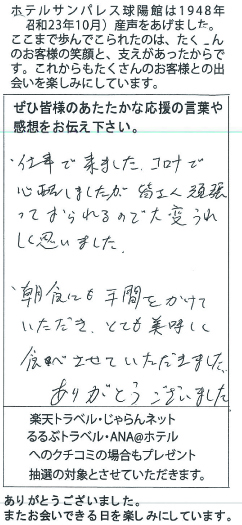 ホテルサンパレス球陽館は1948年
昭和23年10月）産声をあげました。
ここまで歩んでこられたのは、たく_ん
のお客様の笑顔と、支えがあったからで
す。これからもたくさんのお客様との出
会いを楽しみにしています。
ぜひ皆様のあたたかな応援の言葉や
感想をお伝え下さい。
・仕事で来ました。コロナで
心配しましたが皆さん頑張
っておられるので大変うれ
しく思いました。
・朝食にも手間をかけて
いただき、とても美味しく
食べさせていただきました
ありがとうございました
楽天トラベル・じゃらんネット
るるぶトラベル・ANA@ホテル
へのクチコミの場合もプレゼント
抽選の対象とさせていただきます。
ありがとうございました。
またお会いできる日を楽しみにしています。